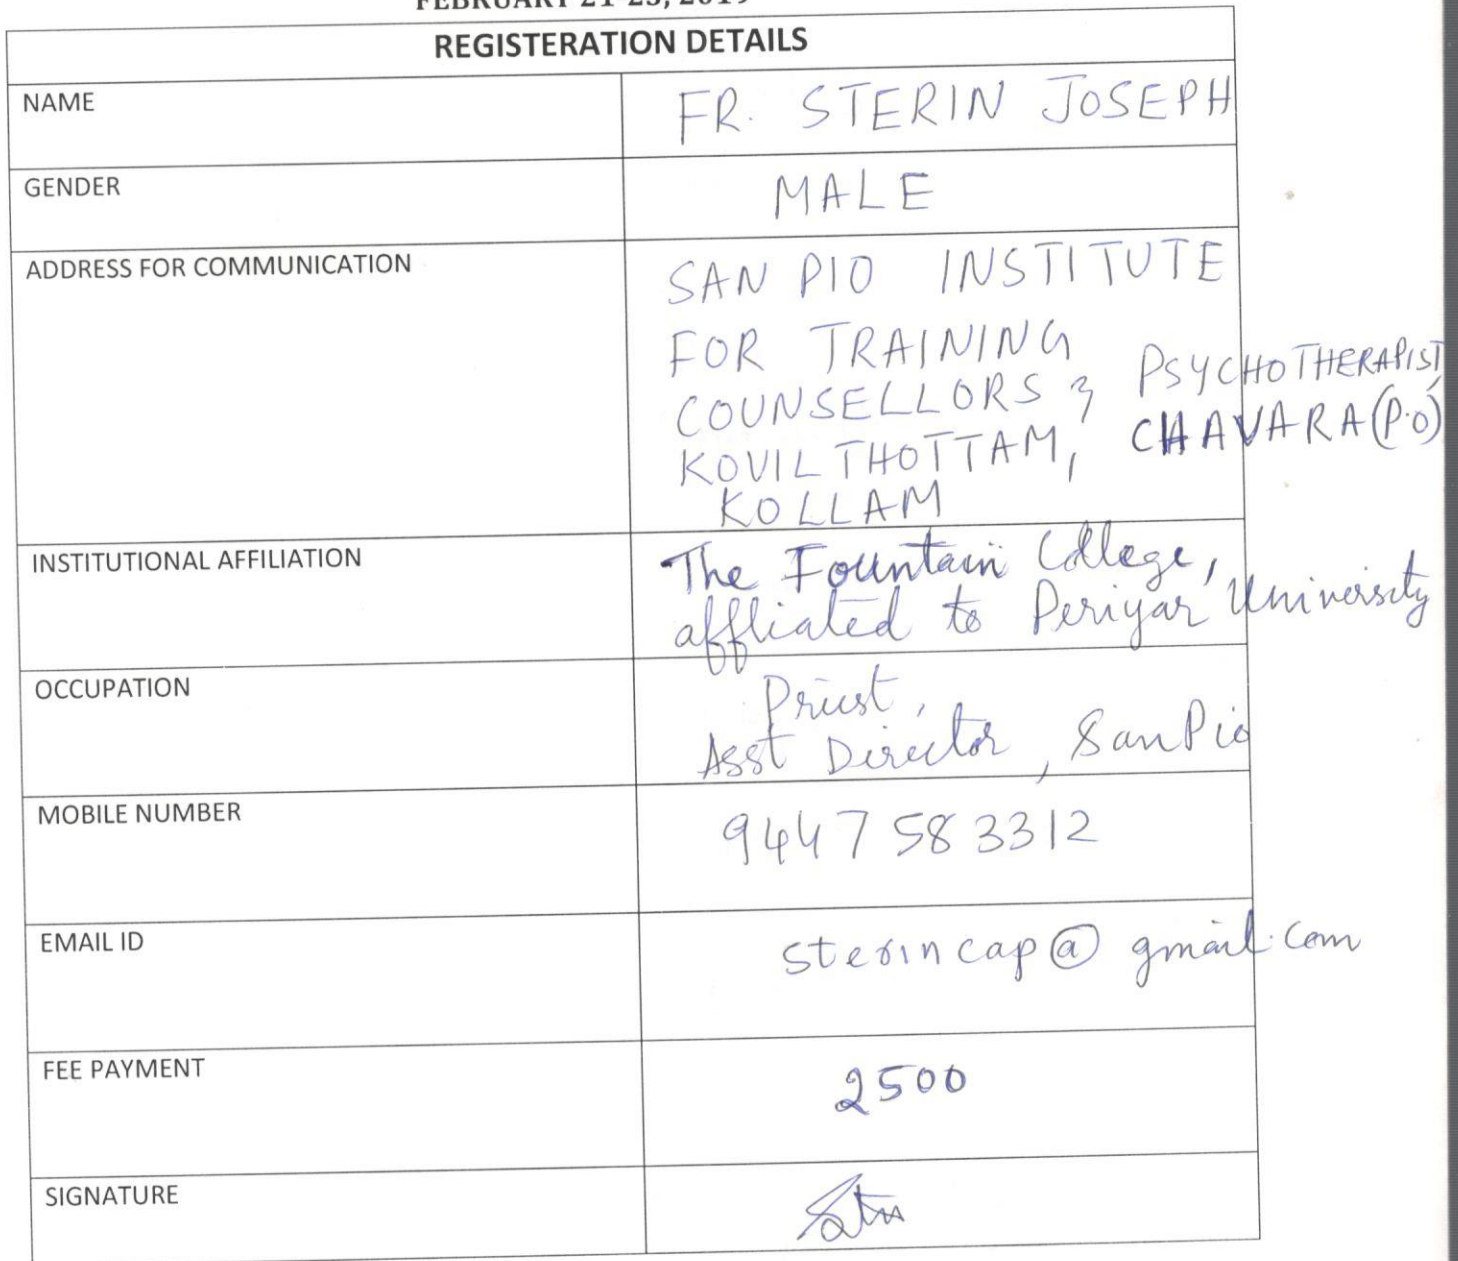 FEBRUARY 21-23, 2019
REGISTERATION DETAILS
NAME
FR. STERIN JOSEPH
GENDER
MALE
ADDRESS FOR COMMUNICATION
SAN PIO INSTITUTE
FOR TRAINING
COUNSELLORS & PSYCHOTHERAPIST,
KOVILTHOTTAM, CHAVARA (P.O)
KOLLAM
INSTITUTIONAL AFFILIATION
The Fountain College,
affliated to Periyar University
OCCUPATION
Priest,
Asst Director, San Pio
MOBILE NUMBER
9447583312
EMAIL ID
sterincap@gmail.com
FEE PAYMENT
2500
SIGNATURE